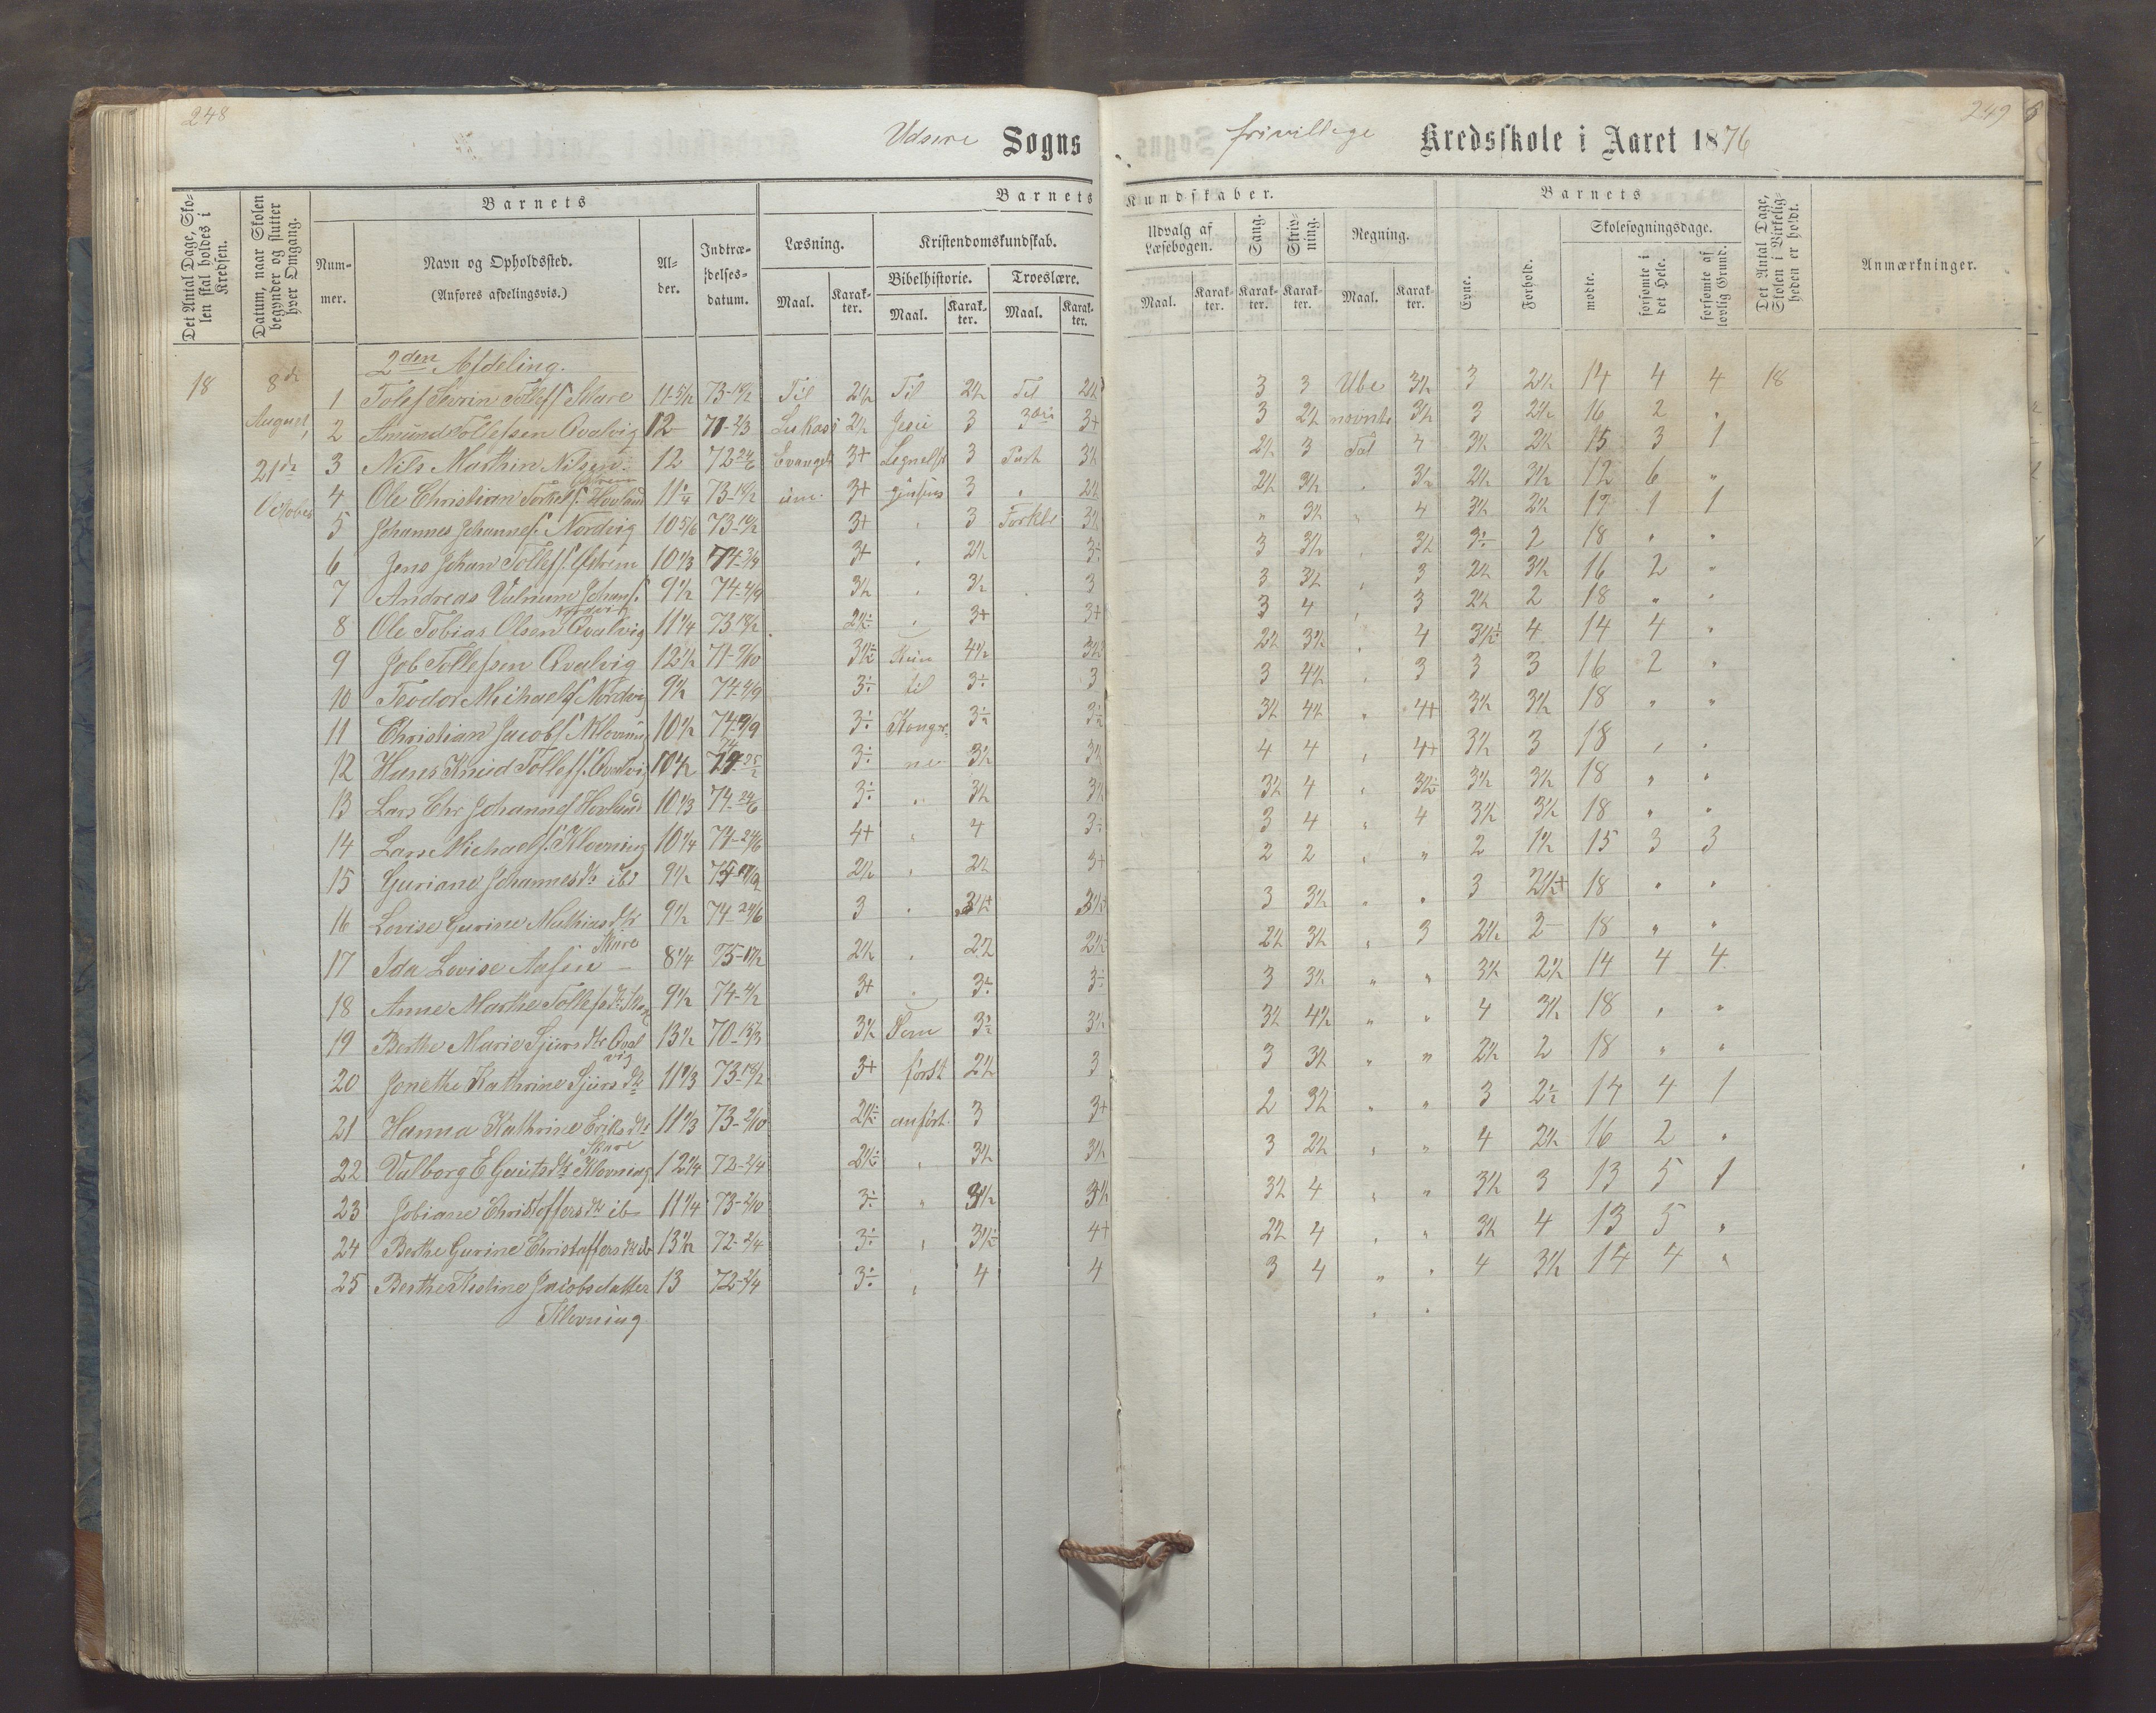 248
Udsire Sogns
frivillige Kredsskole i Aaret 1876
249
Det Antal Dage, Skolen skal holdes i Kredsen.
Datum, naar Skolen begynder og slutter hver Omgang.
Barnets
Nummer.
Navn og Opholdssted.
(Anføres afdelingsvis.)
Alder.
Indtrædelsesdatum.
Barnets
Læsning.
Kristendomskundskab.
Bibelhistorie.
Troeslære.
Maal.
Karakter.
Maal.
Karakter.
Maal.
Karakter.
Kundskaber.
Udvalg af Læsebogen.
Sang.
Skrivning.
Regning.
Maal.
Karakter.
Karakter.
Karakter.
Maal.
Karakter.
Barnets
Evne.
Forhold.
Skolesøgningsdage.
mødte.
forsømte i det Hele.
forsømte af lovlig Grund.
Det Antal Dage, Skolen i Virkeligheden er holdt.
Anmærkninger.
2den Afdeling.
18 8de 1 Tolef Sevrin Tollefs. Skare 11 5/12 73-18/2 Til 2½ Til 2½ Til 2½ 3 3 Ube 3½ 3 2½ 14 4 4 18
August, 2 Amund Tollefsen Qvalvig 12 71-2/3 Lukas 2½ Jesu 3 3die 3+ 3 2½ nævnte 3½ 3 2½ 16 2 "
21de 3 Nils Marthin Nilsen 12 72 24/6 Evangeli 3+ 3 Part 3½ 2½ 3 Tal 4 3½ 2½ 15 3 1
Østrem
October 4 Ole Christian Torkels. Hovland 11¼ 73-18/2 um. 3+ 3 " 2½ 2½ 3½ " 3½ 2½ 3½ 12 6 "
5 Johannes Johannes. Nordvig 10 5/6 73-18/2 3+ " 3 Forkl. 3½ " 3½ " 4 3½ 2½ 17 1 1
6 Jens Johan Tollefs. Østrem 10 1/3 74-2/9 3+ " 2½ 3÷ 3 3½ " 3½ 3÷ 2 18 " "
7 Andreas Valnum Johans. 9½ 74-4/9 3½ " 3½ 3 3 3½ " 3 2½ 3½ 16 2 "
Nordvig
8 Ole Tobias Olsen Qvalvig 11¼ 73 18/2 2½÷ " 3+ 3+ 3 4 " 3 2½ 2 18 " "
9 Job Tollefsen Qvalvig 12½ 71-9/10 3½÷ Kun 4½ 3½ 2½ 3½ " 4 3½÷ 4 14 4 "
10 Teodor Michaels. Nordvig 9½ 74-4/9 3÷ til 3÷ 3 3 4½ " 3 3 3 16 2 "
11 Christian Jacobs. Klovning 10½ 74-9/9 3÷ Konge 3½ 3½ 3½ 4½ " 4+ 3½ 3½ 18 " "
12 Hans Knud Tollefs. Qvalvig 10½ 74 25/2 3÷ ne 3½ 3½ 4 4 " 4+ 3½ 3 18 " "
13 Lars Chr Johannes Hovland 10 1/3 74-24/6 3÷ " 3½ 3½ 3½ 4 " 3½÷ 3½ 3½ 18 " "
14 Lars Michaels. Klovning 10¼ 74-24/6 4+ " 4 3÷ 3 4 " 4 3½ 3½ 18 " "
15 Guriane Johannesdtr ibd 9½ 2½ " 2½ 3+ 2 2 " " 2 1½ 15 3 3
16 Lovise Gurine Mathiasdtr 9½ 74-24/6 3 " 3½+ 3½+ 3 3½ " " 3 2½+ 18 " "
Skare
17 Ida Lovise Aasen — 8¼ 75-17/2 2½ " 2½ 2½ 2½ 3½ " 3 2½ 2 18 " "
18 Anne Marthe Tollefsdtr Skare 9½ 74-4/2 3+ " 3÷ 3÷ 3 3½ " " 3½ 2½ 14 4 4
19 Berthe Marie Sjursdtr Qvalvig 13½ 70-13/3 3½ Som 3½ 3½ 3½ 4½ " " 4 3½ 18 " "
20 Jonethe Kathrine Sjursdtr 11 1/3 73-18/2 3+ først 2½ 3 3 3½ " " 2½ 2 18 " "
21 Hanna Kathrine Eriksdtr 11 1/3 73-2/10 2½÷ anført. 3 3+ 2 3½ " " 3 2½ 14 4 1
Skare
22 Valborg E Gautsdtr Klovning 12¼ 72-2/4 2½÷ " 3½ 3½ 3 2½ " " 4 2½ 16 2 "
23 Jobiane Christoffersdtr ib 11¼ 73-2/10 3÷ " 3½ 3½ 3½ 4 " " 3½ 3 13 5 1
24 Berthe Gurine Christoffersdtr ib 13½ 72-2/4 3÷ " 3½÷ 4+ 2½ 4 " " 3½ 4 13 5 "
25 Berthe Kistine Jacobsdatter 13 72-2/4 3÷ " 4 4 3 4 " " 4 3½ 14 4 "
Klovning